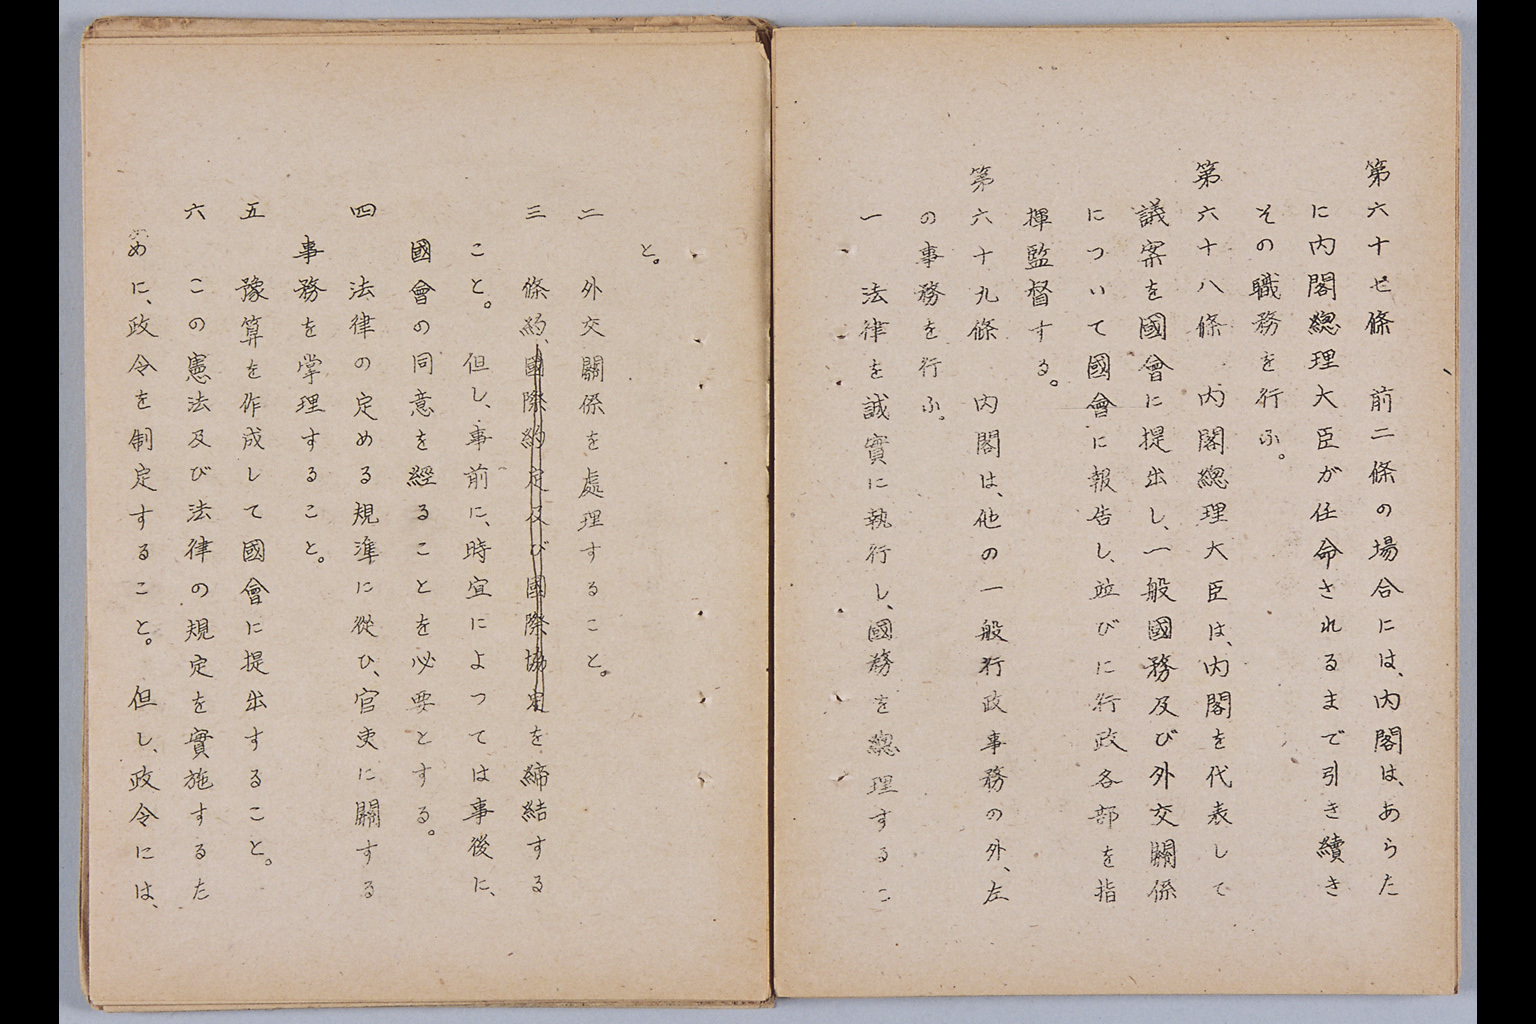 第六十七條　前二條の場合には、内閣は、あらた
に内閣總理大臣が任命されるまで引き續き
その職務を行ふ。
第六十八條　内閣總理大臣は、内閣を代表して
議案を國會に提出し、一般國務及び外交關係
について國會に報告し、竝びに行政各部を指
揮監督する。
第六十九條　内閣は、他の一般行政事務の外、左
の事務を行ふ。
一　法律を誠實に執行し、國務を總理するこ
と。
二　外交關係を處理すること。
三　條約、國際約定及び國際協定を締結する
こと。　但し、事前に、時宜によつては事後に、
國會の同意を經ることを必要とする。
四　法律の定める規準に從ひ、官吏に關する
事務を掌理すること。
五　豫算を作成して國會に提出すること。
六　この憲法及び法律の規定を實施するた
めに、政令を制定すること。　但し、政令には、